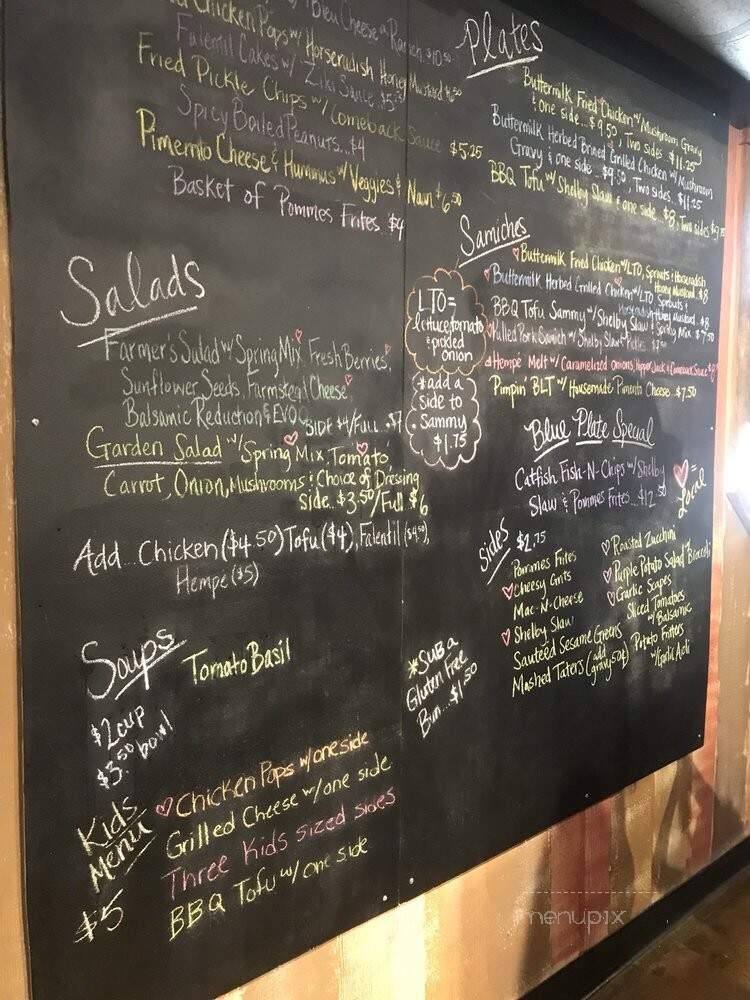 Bleu Cheese or Ranch $10.50
Chicken Pops w/ Horseradish Honey Mustard $6.50
Falentil Cakes w/ Ziki Sauce $5.75
Fried Pickle Chips w/ Comeback Sauce $5.25
Spicy Boiled Peanuts...$4
Pimento Cheese & Hummus w/ Veggies & Naan $6.50
Basket of Pommes Frites $4
Salads
Farmer's Salad w/ Spring Mix, Fresh Berries,
Sunflower Seeds, Farmstead Cheese
Balsamic Reduction & EVOO
Side $4/Full $7
Garden Salad w/ Spring Mix Tomato
Carrot, Onion, Mushrooms & Choice of Dressing
Side..$3.50/Full $6
Add...Chicken ($4.50) Tofu ($4), Falentil ($4.50),
Hempe ($5)
Soups
Tomato Basil
$2 cup
$3.50 bowl
Kids
Menu
$5
Chicken Pops w/ one side
Grilled Cheese w/ one side
Three Kids sized sides
BBQ Tofu w/ one side
Plates
Buttermilk Fried Chicken w/ Mushroom Gravy
& one side...$9.50, Two sides...$11.25
Buttermilk Herbed Brined Grilled Chicken w/ Mushroom
Gravy & one side...$9.50, Two sides...$11.25
BBQ Tofu w/ Shelby Slaw & one side...$8, Two sides
Samiches
Buttermilk Fried Chicken w/ LTO, Sprouts & Horseradish
Honey Mustard..$8
Buttermilk Herbed Grilled Chicken w/ LTO Sprouts &
Horseradish Honey Mustard..$8
BBQ Tofu Sammy w/ Shelby Slaw & Spring Mix $7.50
Pulled Pork Samich w/ Shelby Slaw & Pickles
Hempé Melt w/ Caramelized Onions, Pepper Jack & Comeback Sauce
Pimpin' BLT w/ Housemade Pimento Cheese..$7.50
LTO=
lettuce, tomato
& pickled
onion
*add a
side to
Sammy
$1.75
Blue Plate Special
Catfish Fish-N-Chips w/ Shelby
Slaw & Pommes Frites...$12.50
♡ =
Local
Sides
$2.75
Pommes Frites
Cheesy Grits
Mac-N-Cheese
Shelby Slaw
Sauteed Sesame Greens
Mashed Taters (add gravy 50¢)
Roasted Zucchini
Purple Potato Salad w/ Broccoli
Garlic Scapes
Sliced Tomatoes
w/ Balsamic
Potato Fritters
w/ Garlic Aoli
*Sub a
Gluten Free
Bun...$1.50
menupix